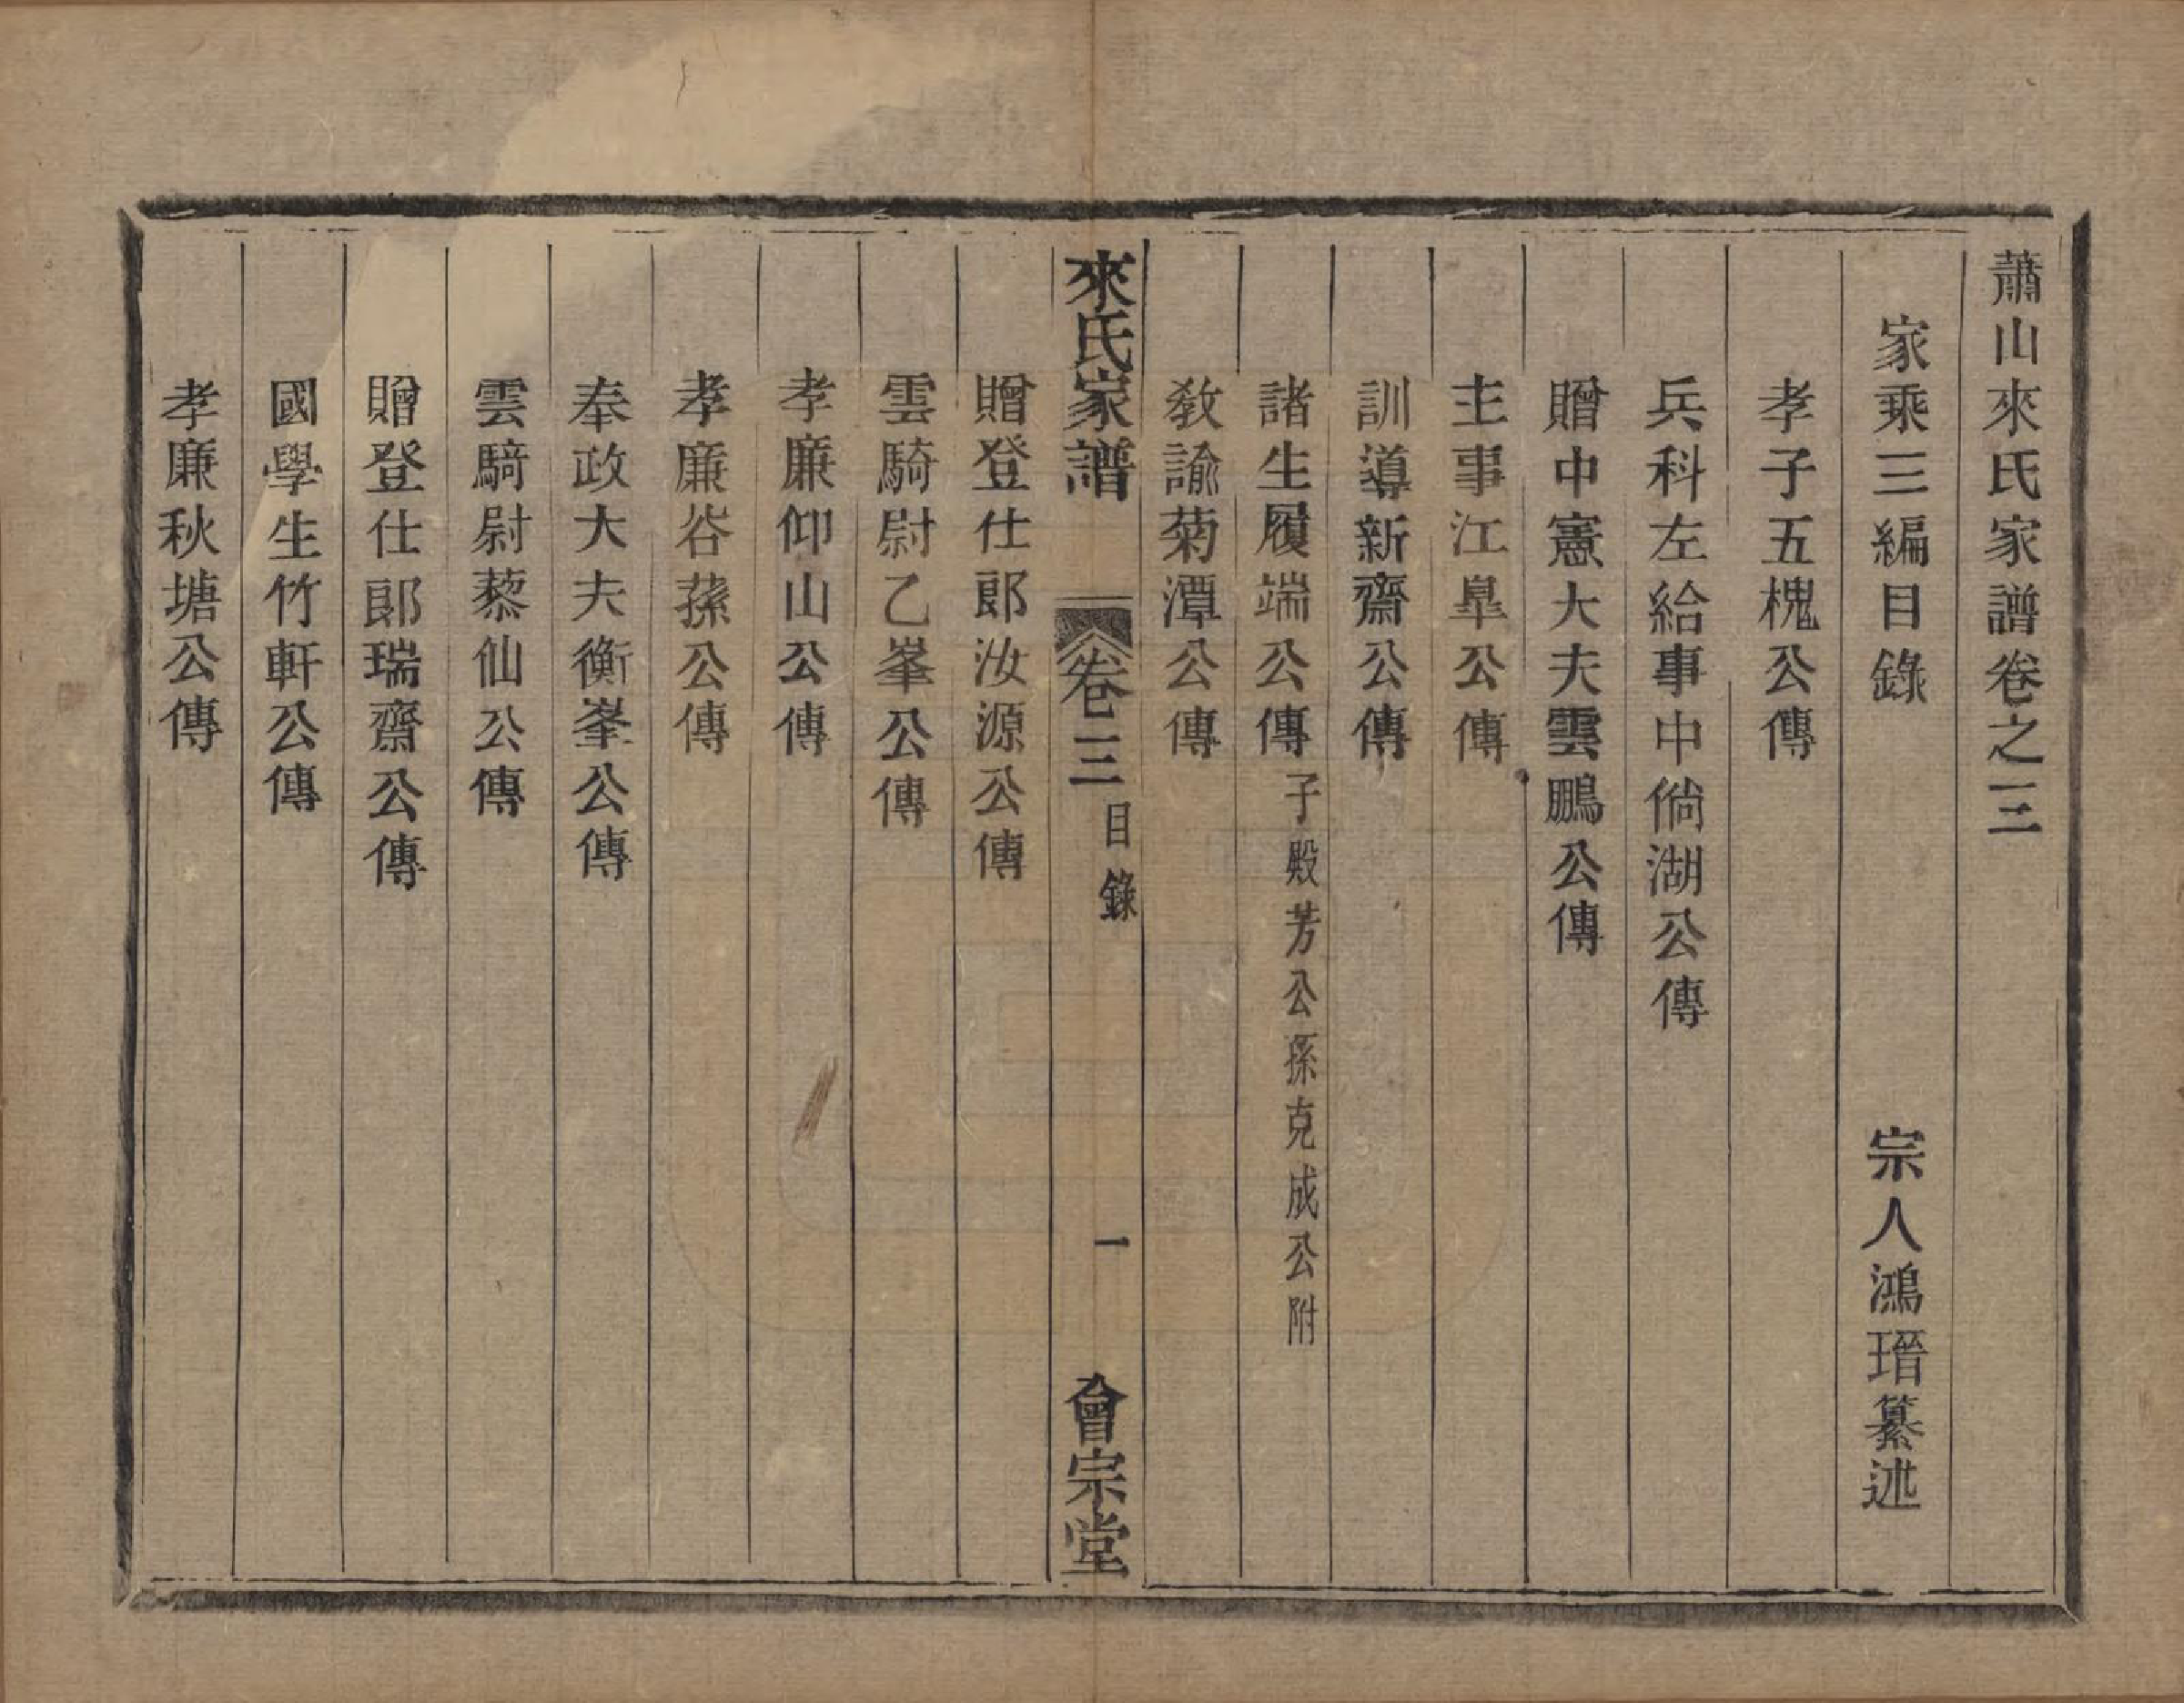 蕭山來氏家譜卷之三
家乘三編目錄　宗人鴻瑨纂述
孝子五槐公傳
兵科左給事中倘湖公傳
贈中憲大夫雲鵬公傳
主事江臯公傳
訓導新齋公傳
諸生履端公傳子殿芳公孫克成公附
敎諭菊潭公傳
來氏家譜　卷三　目錄　一　會宗堂
贈登仕郎汝源公傳
雲騎尉乙峯公傳
孝廉仰山公傳
孝廉谷蓀公傳
奉政大夫衡峯公傳
雲騎尉藜仙公傳
贈登仕郎瑞齋公傳
國學生竹軒公傳
孝廉秋塘公傳